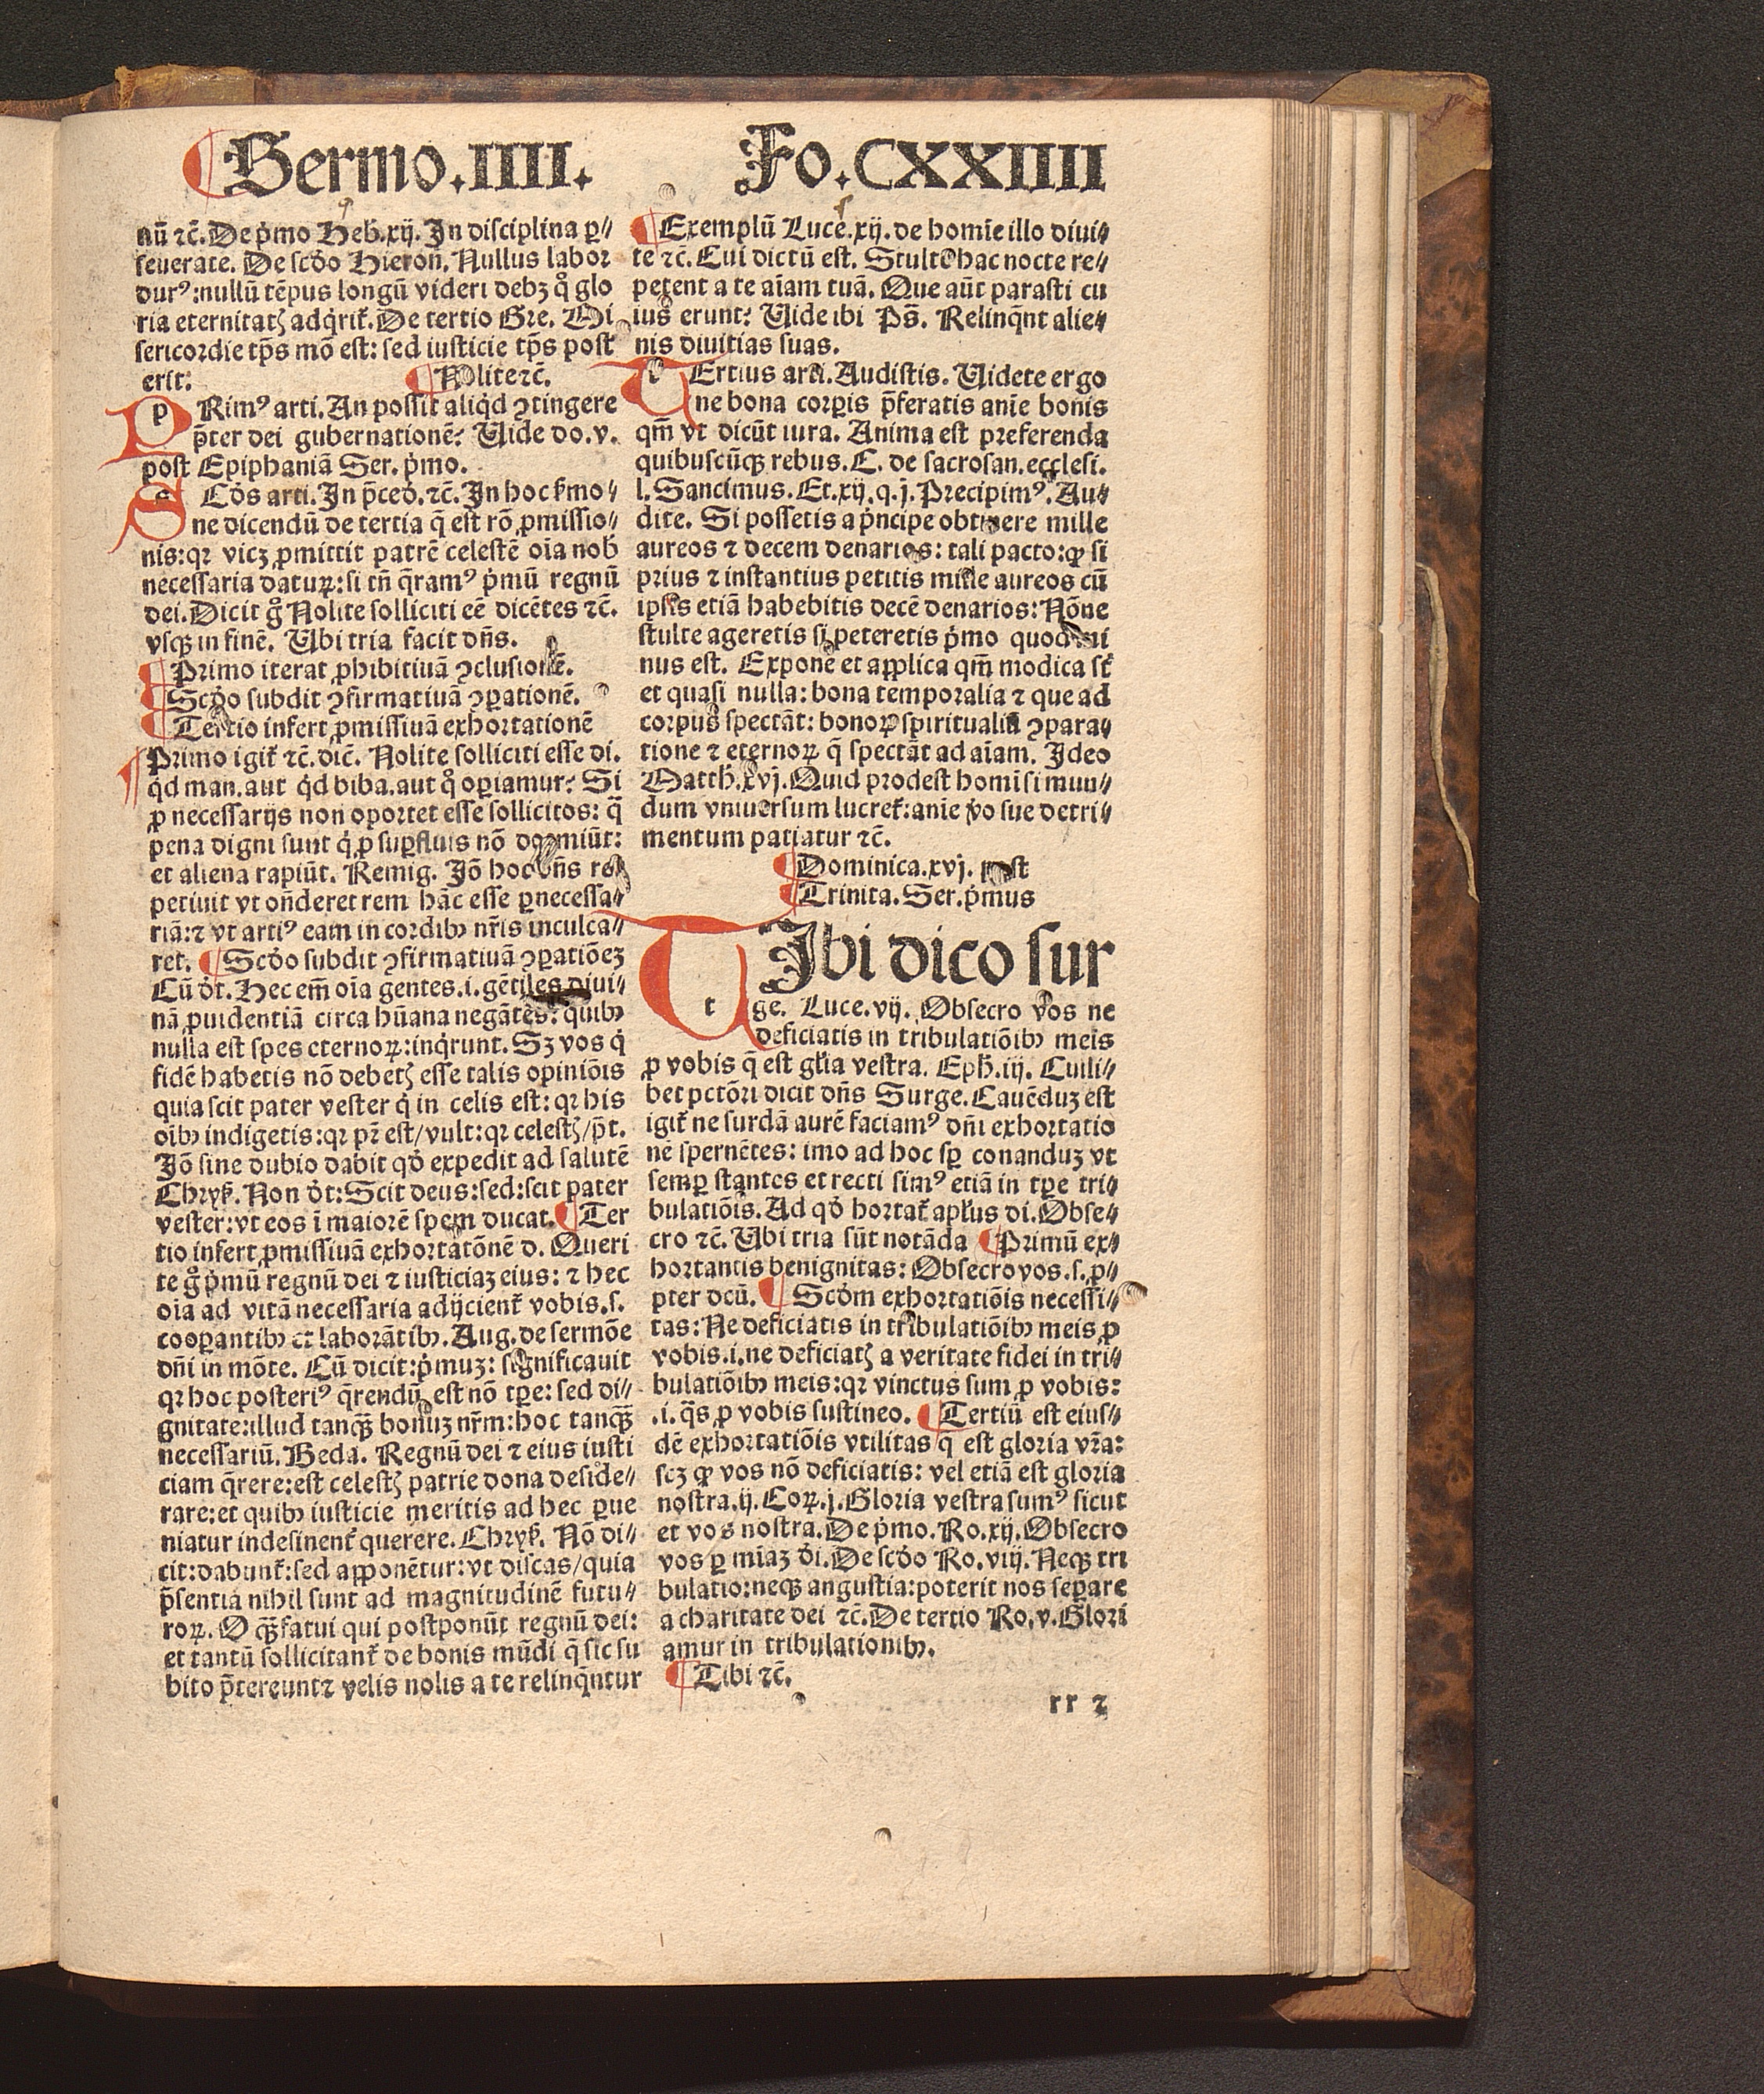 ¶Sermo.IIII. Fo.CXXIIII
nū ⁊c̄. De p̍mo Heb̄.xij. In disciplina ꝑ⸗
seuerate. De scd̓o Hieron̄. Nullus labor
durꝰ:nullū tēpus longū videri debꝫ q̊ glo
ria eternitatꝭ adq̍rit᷑. De tertio Gre. Mi
sericordie tp̄s mō est: sed iusticie tp̄s post
erit: ¶Nolite ⁊c̄.
pRimꝰ arti. An possit aliq̍d ꝯtingere
p̄ter dei gubernationē? Uide do.v.
post Epiphaniā Ser. p̍mo.
SCd̓s arti. In p̄ced̓. ⁊c̄. In hoc ẜmo⸗
ne dicendū de tertia q̄ est rō ꝓmissio⸗
nis:qꝛ vicꝫ ꝓmittit patrē celestē oīa nob̄
necessaria daturꝝ:si tn̄ q̄ramꝰ p̍mū regnū
dei. Dicit g̊ Nolite solliciti eē dicētes ⁊c̄.
vsqꝫ in finē. Ubi tria facit dn̄s.
¶Primo iterat ꝓhibitiuā ꝯclusionē.
¶Scd̓o subdit ꝯfirmatiuā ꝯꝑationē.
¶Tertio infert ꝓmissiuā exhortationē
¶Primo igit᷑ ⁊c̄. dic̄. Nolite solliciti esse di.
q̍d man.aut q̍d biba.aut q̊ oꝑiamur? Si
ꝓ necessarijs non oportet esse sollicitos: q̄
pena digni sunt q̍ ꝓ suꝑfluis nō dormiūt:
et aliena rapiūt. Remig. Jō hoc dn̄s re⸗
petiuit vt on̄deret rem hāc esse ꝑnecessa⸗
riā:⁊ vt artiꝰ eam in cordibꝰ nr̄is inculca⸗
ret. ¶Scd̓o subdit ꝯfirmatiuā ꝯꝑatiōeꝫ
Cū d̓t. Hec em̄ oīa gentes.i.gētiles diui⸗
nā ꝓuidentiā circa hūana negātes: quibꝰ
nulla est spes eternoꝝ:inq̍runt. Sꝫ vos q̍
fidē habetis nō debetꝭ esse talis opiniōis
quia scit pater vester q̍ in celis est: qꝛ his
oībꝰ indigetis:qꝛ pr̄ est/vult:qꝛ celestꝭ/p̄t.
Jō sine dubio dabit qd̓ expedit ad salutē
Chryẜ. Non d̓t:Scit deus:sed:scit pater
vester:vt eos ī maiorē spem ducat.¶Ter
tio infert ꝓmissiuā exhortatōnē d. Queri
te g̊ p̍mū regnū dei ⁊ iusticiaꝫ eius: ⁊ hec
oīa ad vitā necessaria adijcient᷑ vobis.s.
cooꝑantibꝰ et laborātibꝰ. Aug. de sermōe
dn̄i in mōte. Cū dicit:p̍muꝫ: significauit
qꝛ hoc posteriꝰ q̄rendū est nō tꝑe: sed di⸗
gnitate:illud tanqꝫ̄ bonuꝫ nr̄m:hoc tanqꝫ̄
necessariū. Beda. Regnū dei ⁊ eius iusti
ciam q̄rere:est celestꝭ patrie dona deside⸗
rare:et quibꝰ iusticie meritis ad hec ꝑue
niatur indesinent᷑ querere. Chryẜ. Nō di⸗
cit:dabunt᷑:sed apponētur:vt discas/quia
p̄sentia nihil sunt ad magnitudinē futu⸗
roꝝ. O qꝫ̄ fatui qui postponūt regnū dei:
et tantū sollicitant᷑ de bonis mūdi q̄ sic su
bito p̄tereunt⁊ velis nolis a te relinq̄ntur
¶Exemplū Luce.xij. de homīe illo diui⸗
te ⁊c̄. Cui dictū est. Stulte hac nocte re⸗
petent a te aīam tuā. Que aūt parasti cu
ius erunt? Uide ibi Ps̄. Relinq̄nt alie⸗
nis diuitias suas.
tErtius arti. Audistis. Uidete ergo
ne bona corꝑis p̄feratis anīe bonis
qm̄ vt dicūt iura. Anima est preferenda
quibuscūqꝫ rebus. C. de sacrosan. ecclesi.
l. Sancimus. Et.xij.q.j. Precipimꝰ. Au⸗
dite. Si possetis a p̍ncipe obtinere mille
aureos ⁊ decem denarios: tali pacto:ꝙ si
prius ⁊ instantius petitis mille aureos cū
ipsis etiā habebitis decē denarios: Nōne
stulte ageretis si peteretis p̍mo quod mi
nus est. Expone et applica qm̄ modica st̄
et quasi nulla: bona temporalia ⁊ que ad
corpus spectāt: bonoꝝ spiritualiū ꝯpara⸗
tione ⁊ eternoꝝ q̄ spectāt ad aīam. Ideo
Matth̄.xvj. Quid prodest homi si mun⸗
dum vniuersum lucret᷑:anīe v̓o sue detri⸗
mentum patiatur ⁊c̄.
¶Dominica.xvj. post
¶Trinita. Ser.p̍mus
tIbi dico sur
ge. Luce.vij. Obsecro vos ne
deficiatis in tribulatiōibꝰ meis
ꝓ vobis q̄ est gl̓ia vestra. Eph̄.iij. Cuili⸗
bet pctōri dicit dn̄s Surge. Cauēduꝫ est
igit᷑ ne surdā aurē faciamꝰ dn̄i exhortatio
nē spernētes: imo ad hoc sꝑ conanduꝫ vt
semꝑ stantes et recti simꝰ etiā in tꝑe tri⸗
bulatiōis. Ad qd̓ hortat᷑ apl̓us di. Obse⸗
cro ⁊c̄. Ubi tria sūt notāda ¶Primū ex⸗
hortantis benignitas: Obsecro vos.s.ꝓ⸗
pter dcū. ¶Scd̓m exhortatiōis necessi⸗
tas: Ne deficiatis in tribulatiōibꝰ meis ꝓ
vobis.i.ne deficiatꝭ a veritate fidei in tri⸗
bulatiōibꝰ meis:qꝛ vinctus sum ꝓ vobis:
.i. q̄s ꝓ vobis sustineo. ¶Tertiū est eius⸗
dē exhortatiōis vtilitas q̄ est gloria vr̄a:
scꝫ ꝙ vos nō deficiatis: vel etiā est gloria
nostra.ij. Coꝝ.j. Gloria vestra sumꝰ sicut
et vos nostra. De p̍mo. Ro.xij. Obsecro
vos ꝑ mīaꝫ d̓i. De scd̓o Ro. viij. Neqꝫ tri
bulatio:neqꝫ angustia:poterit nos seꝑare
a charitate dei ⁊c̄. De tertio Ro.v. Glori
amur in tribulationibꝰ.
¶Tibi ⁊c̄.
rr 2